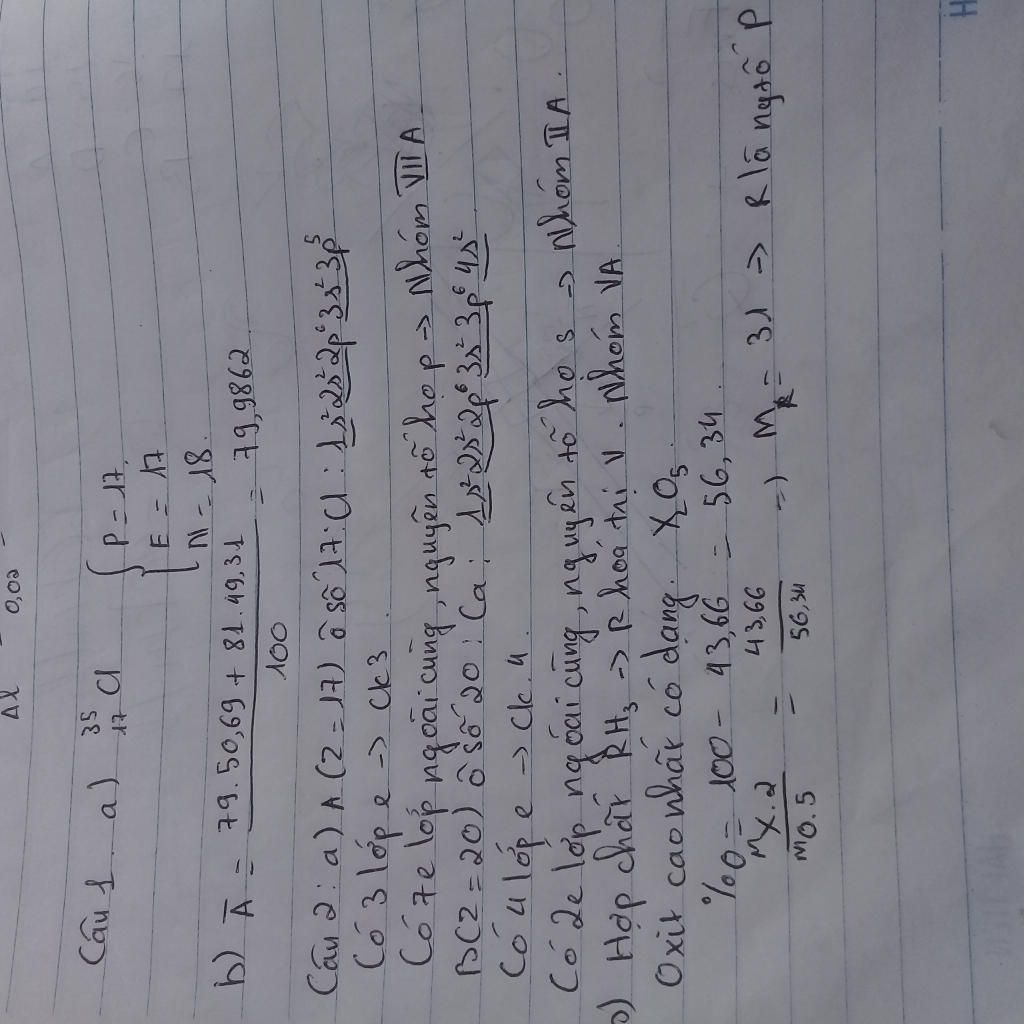 Al 0,02 =
Câu 1 a) ³⁵₁₇Cl { P = 17
E = 17
N = 18.
b) A̅ = (79.50,69 + 81.49,31)/100 = 79,9862
Câu 2: a) A (Z = 17) ô số 17: Cl : 1s²2s²2p⁶3s²3p⁵
Có 3 lớp e -> Ck3
Có 7e lớp ngoài cùng, nguyên tố họ p -> Nhóm VIIA
B(Z = 20) ô số 20 : Ca : 1s²2s²2p⁶3s²3p⁶4s²
Có 4 lớp e -> Ck.4
Có 2e lớp ngoài cùng, nguyên tố họ s -> Nhóm IIA.
b) Hợp chất RH₃ -> R hoá trị V. Nhóm VA
Oxit cao nhất có dạng. X₂O₅.
%O = 100 - 43,66 = 56,34.
(Mx.2)/(MO.5) = 43,66/56,34 => M_R = 31 -> R là ngtố P